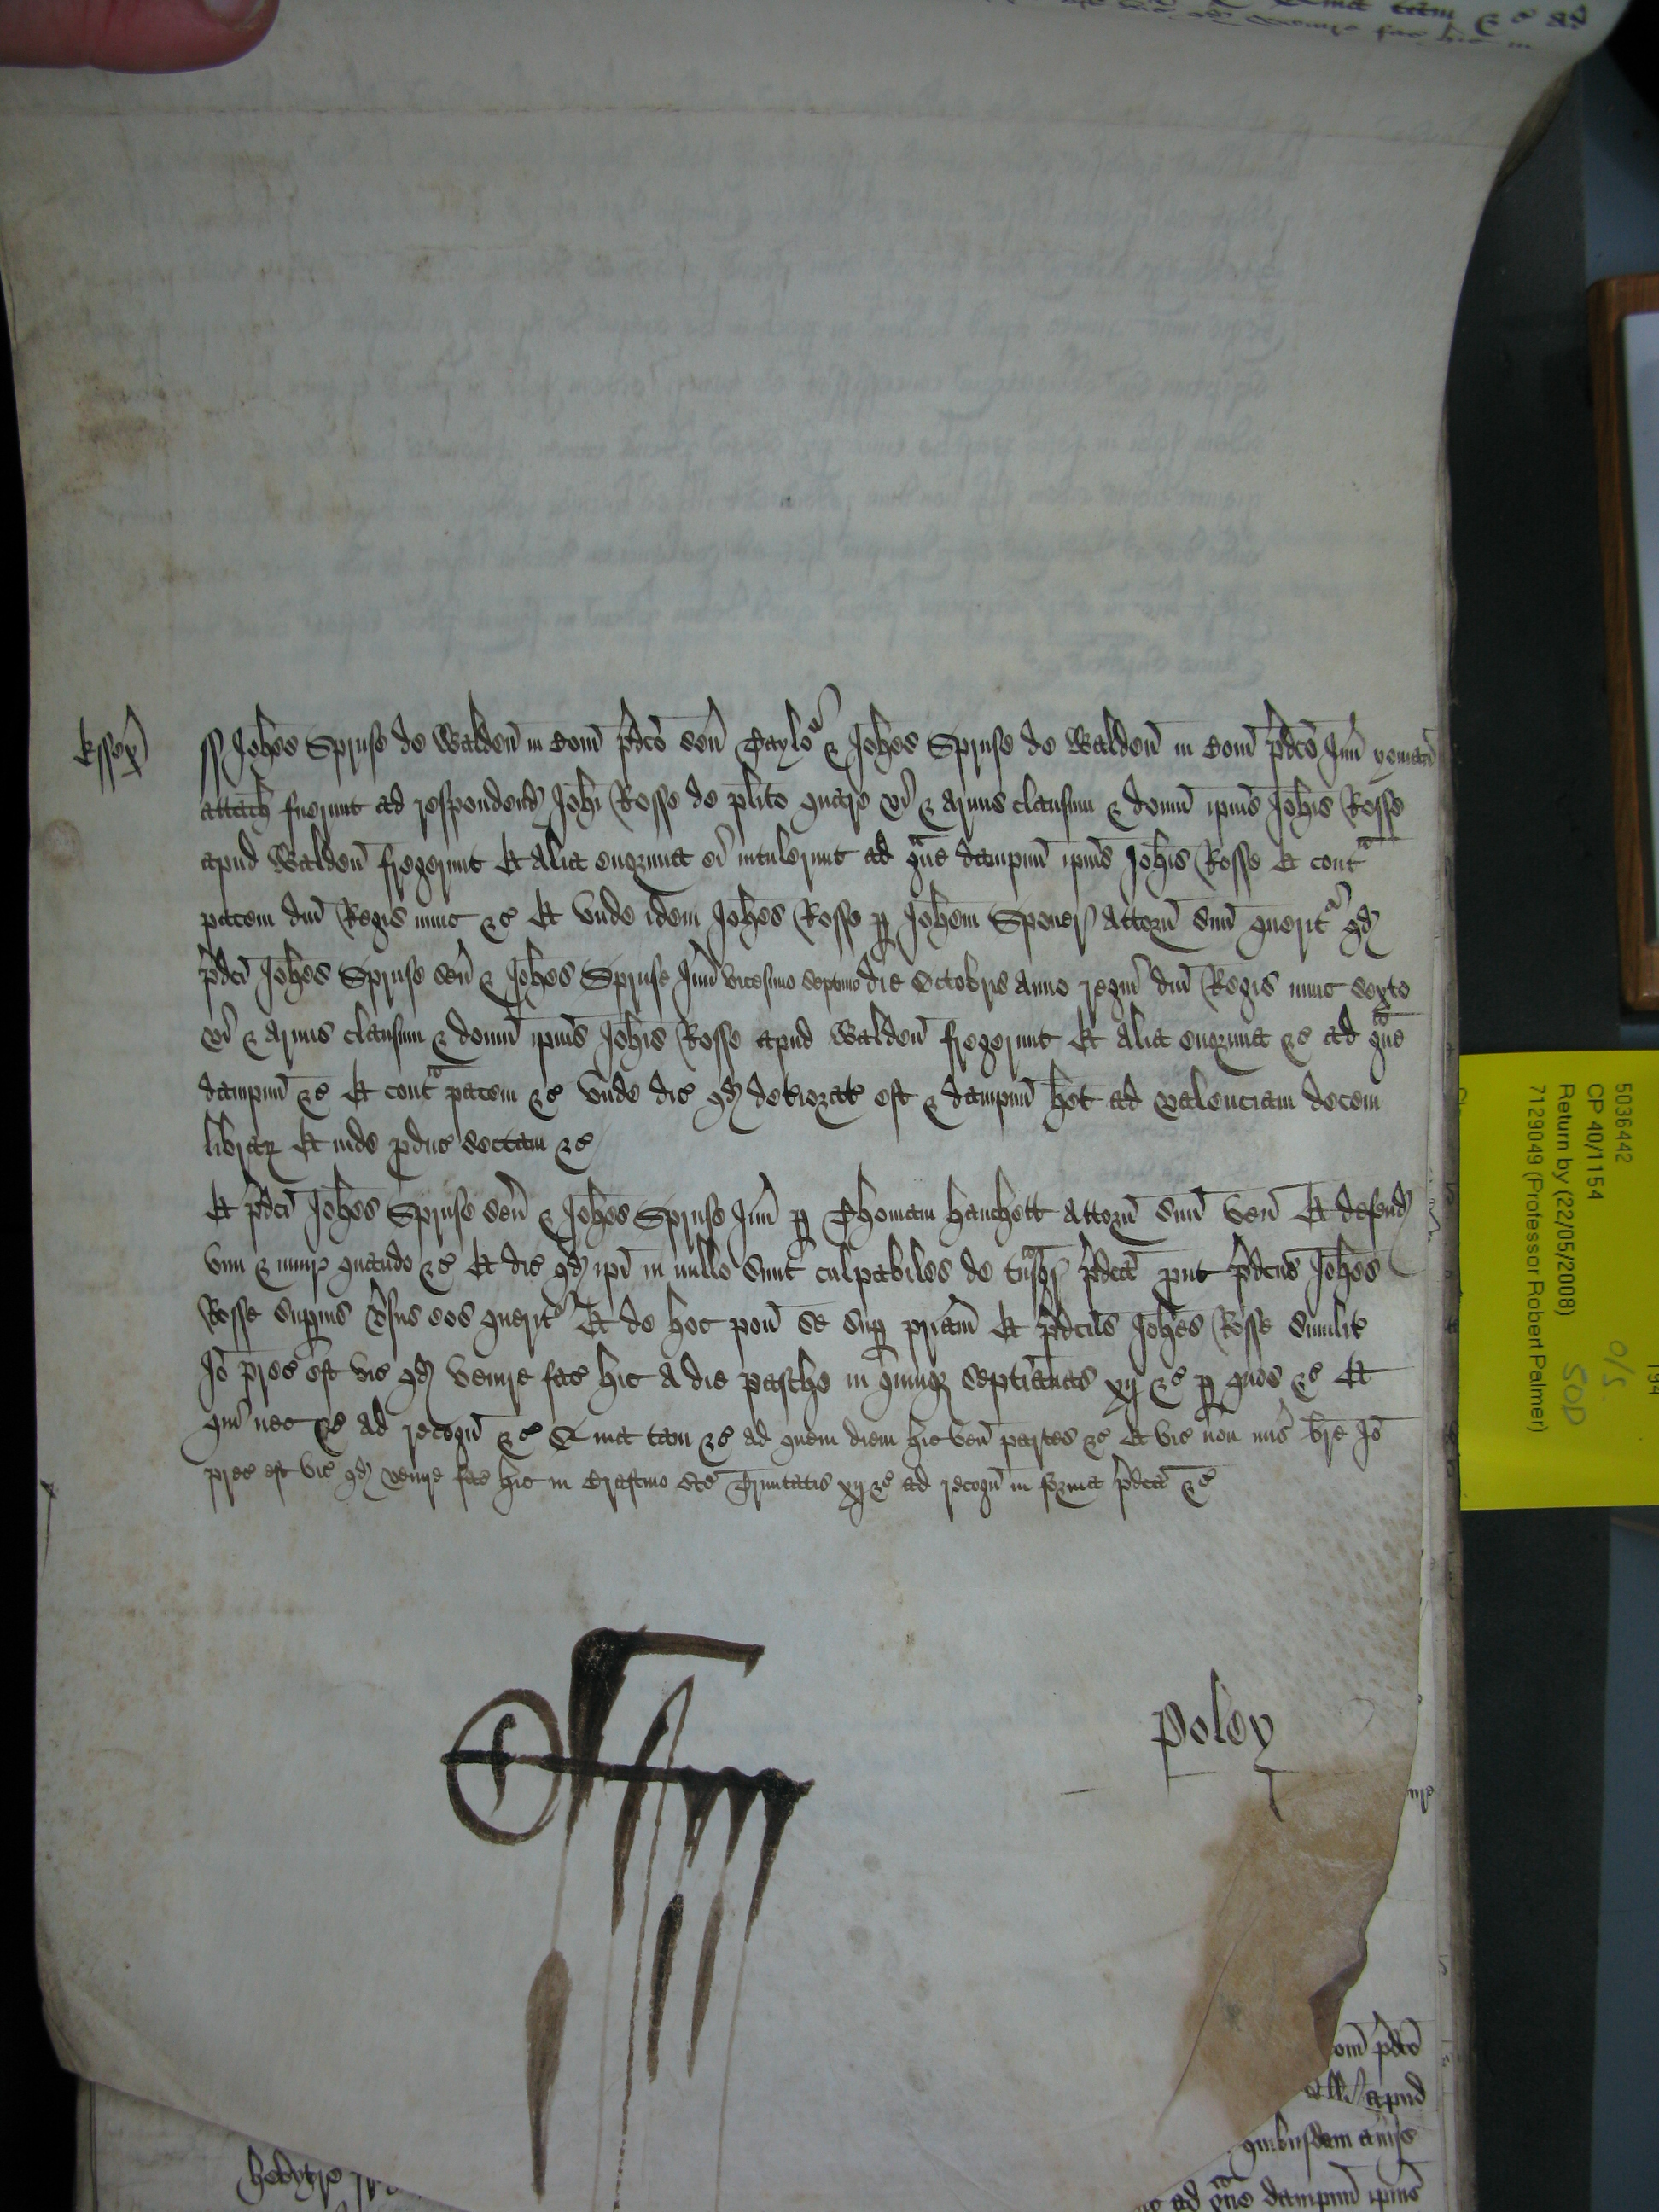 Essex
ss Johes Spruse de Walden in Com p'dco sen Taylor & Johes Spruse de Walden in Com p'dco Jun yeman
attach fuerunt ad respondend Johi Rosse de plito quare vi & armis clausum & domu ipius Johis Rosse
apud Walden fregerunt Et alia enormia ei intulerunt ad g'ue dampnu ipius Johis Rosse Et cont'
pacem dni Regis nunc &c Et unde idem Johes Rosse p Johem attorn suu querit' qd
p'dci Johes Spruse sen & Johes Spruse Jun vicesimo septimo die Octobris anno regni dni Regis nunc sexto
vi & armis clausum & domu ipius Johis Rosse apud Walden fregerunt Et alia enormia &c ad g'ue
dampnu &c Et cont' pacem &c Unde dic qd deteriorat est & dampnu het ad valenciam decem
librar Et inde pduc sectam &c
Et p'dci Johes Spruse sen & Johes Spruse Jun p Thomam Hanchett attorn suu ven Et defend
vim & iniur quando &c Et dic qd ipi in nullo sunt culpabiles de t'nsgr p'dca put p'dcus Johes
Rosse supius v'sus eos querit' Et de hoc pon se sup priam Et p'dcus Johes Rosse similit
Io prec est vic qd venire fac hic a die pasche in quinq septianas xij &c p quos &c Et
qui nec &c ad recogn &c Quia tam &c ad quem diem hic ven partes &c Et vic non mis bre Io
prec est vic qd venire fac hic in Crastino sce Trinitatis xij &c ad recogn in forma p'dca &c
Poley
5036442
CP 40/1154
Return by (22/05/2008)
7129049 (Professor Robert Palmer)
o/s.
SOD
om p'dco
apud
quibusdam
ad g'ue dampnu ipius